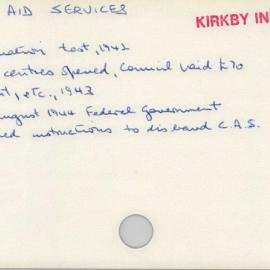 AID SERVICES
KIRKBY IN
test, 1942
centres opened, Council paid £70
etc., 1943
August 1944 Federal Government
instructions to disband C.A.S.